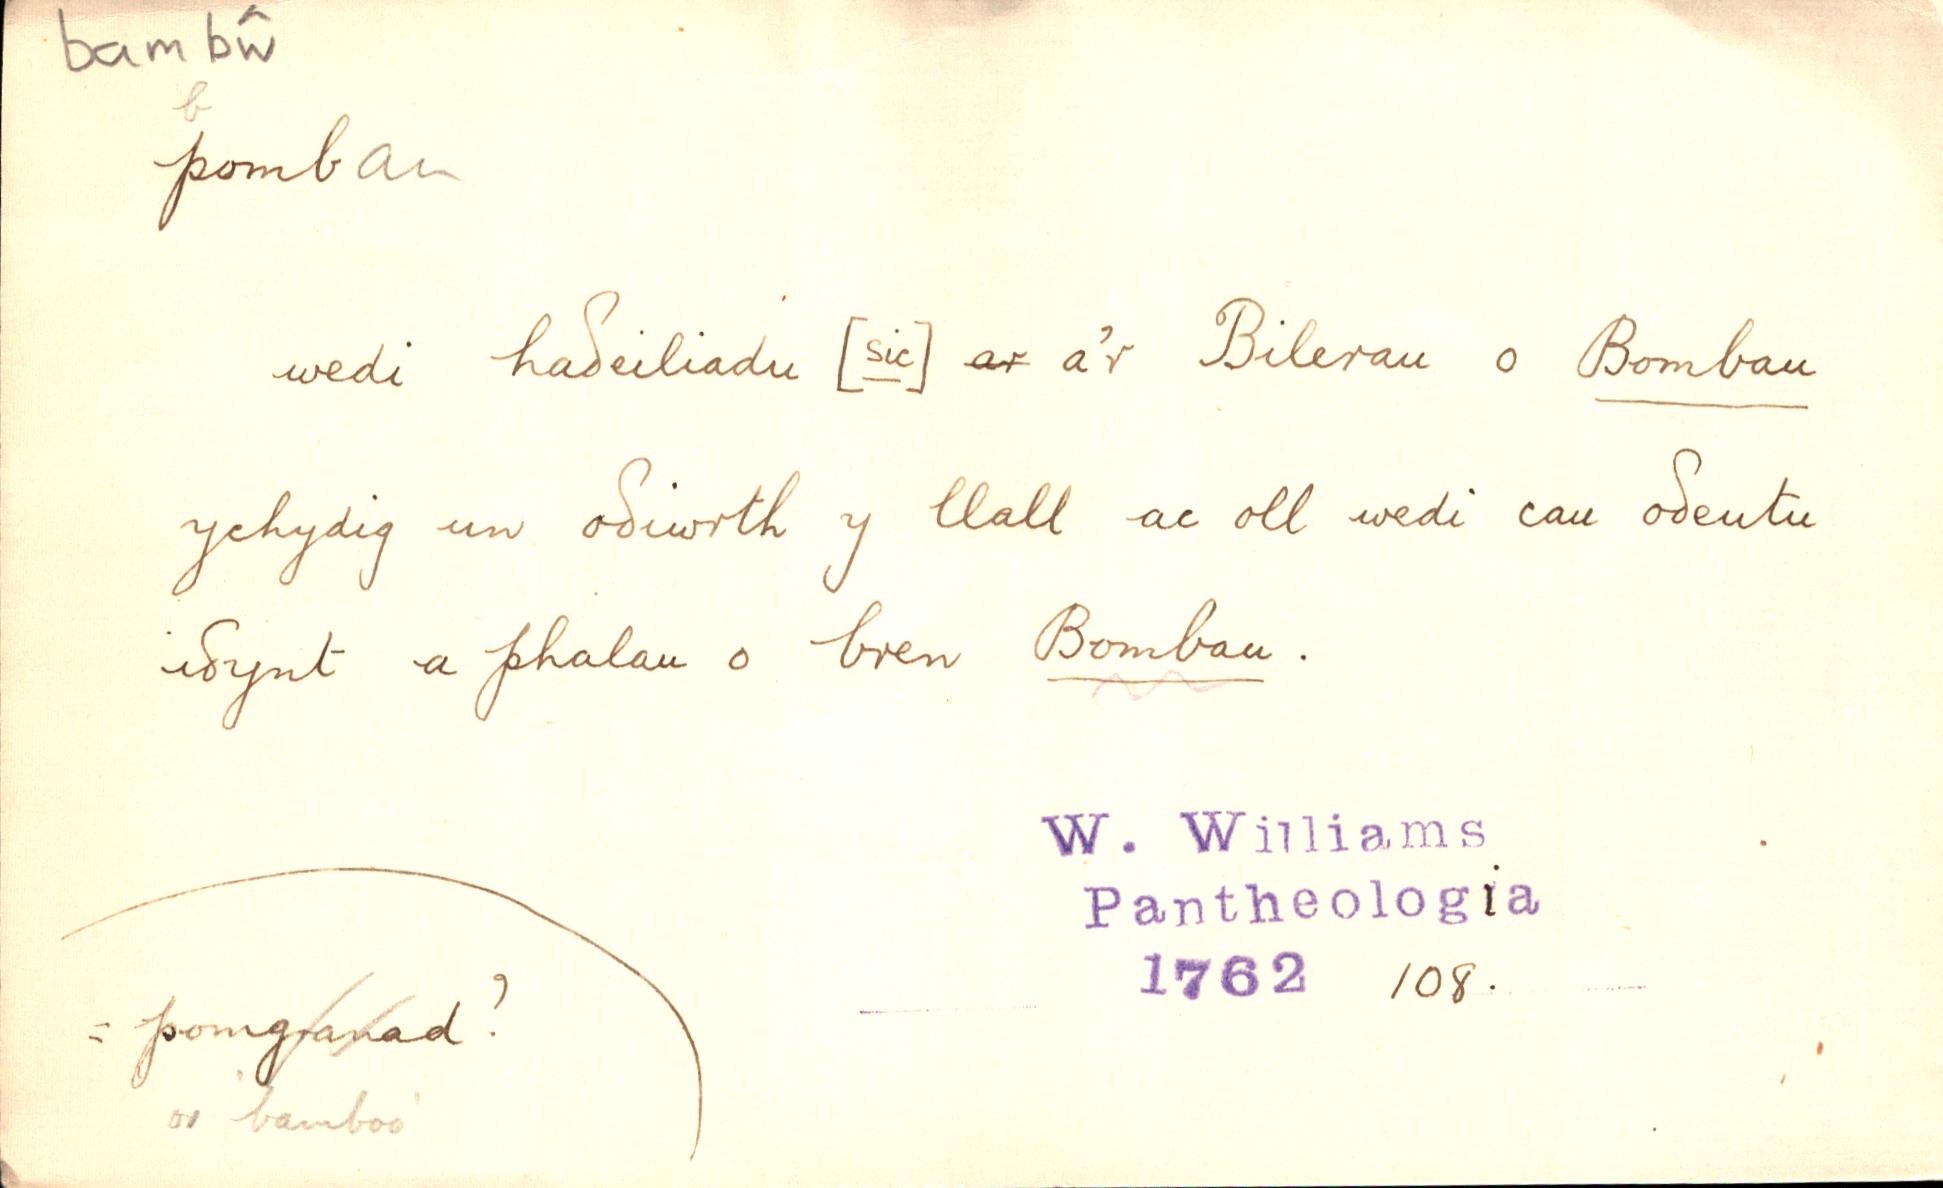 bambŵ
b
pombau
wedi haδeiliadu [sic] ar a'r Bilerau o Bombau
ychydig un oδiwrth y llall ac oll wedi cau oδeutu
iδynt a phalau o bren Bombau.
W. Williams
Pantheologia
1762 108.
= pomgranad?
or 'bamboo'